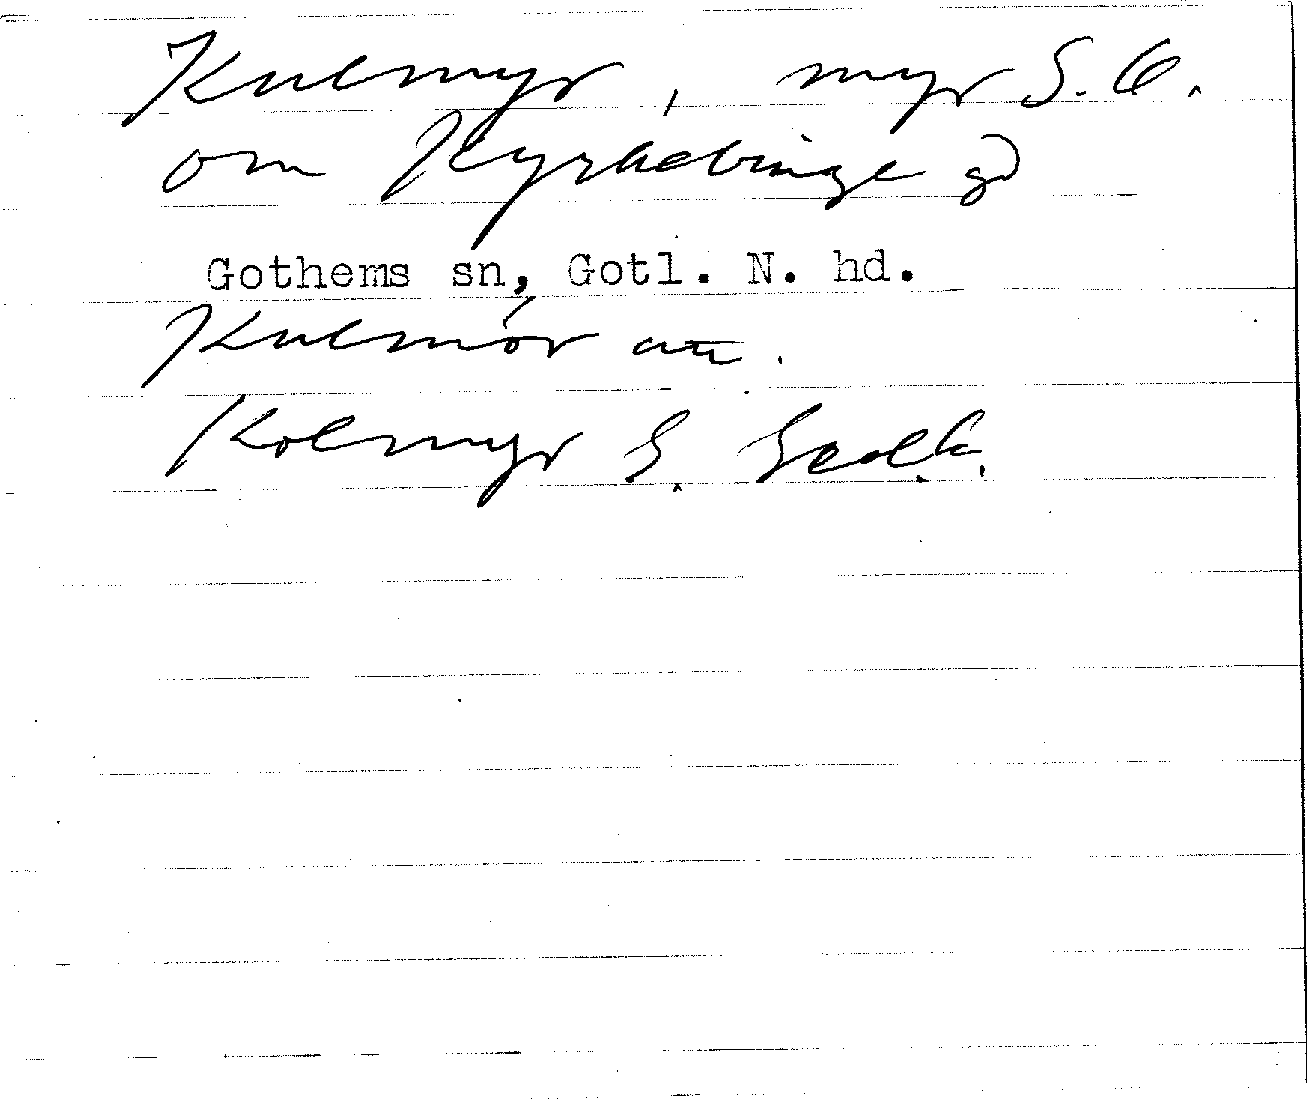 Kulmyr, myr S.O.
om Kyrkebinge gd
Gothems sn, Gotl. N. hd.
Kulmór
Kolmyr G. Geolk.